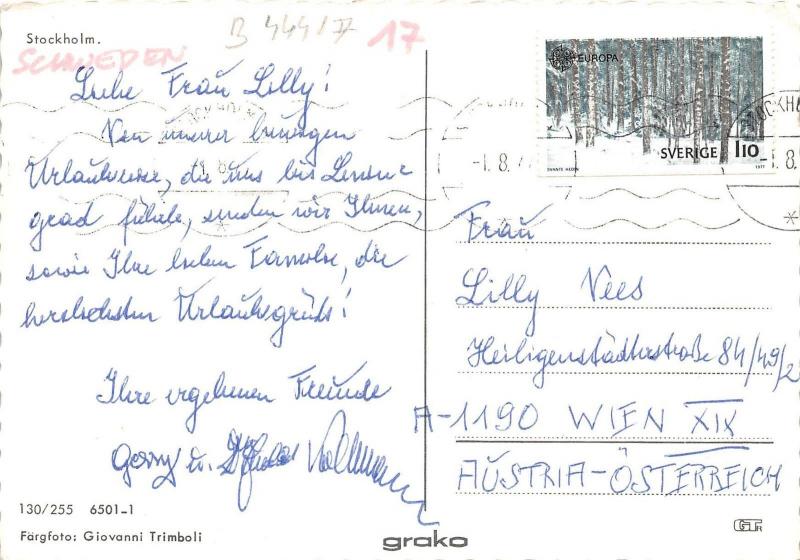 Stockholm.
SCHWEDEN
B 444/V 17
Liebe Frau Lilly!
Von unserer
Urlaubsreise, die uns bis Lenin-
grad führte, senden wir Ihnen,
sowie Ihrer lieben Familie, die
herzlichsten Urlaubsgrüße!
Ihre ergebenen Freunde
Gerry u.
130/255 6501-1
Färgfoto: Giovanni Trimboli
grako
EUROPA
SVERIGE 110
1977
STOCKHO
-1.8.
Frau
Lilly Vees
Heiligenstädterstraße 84/49/2
A-1190 WIEN XIX
AUSTRIA-ÖSTERREICH